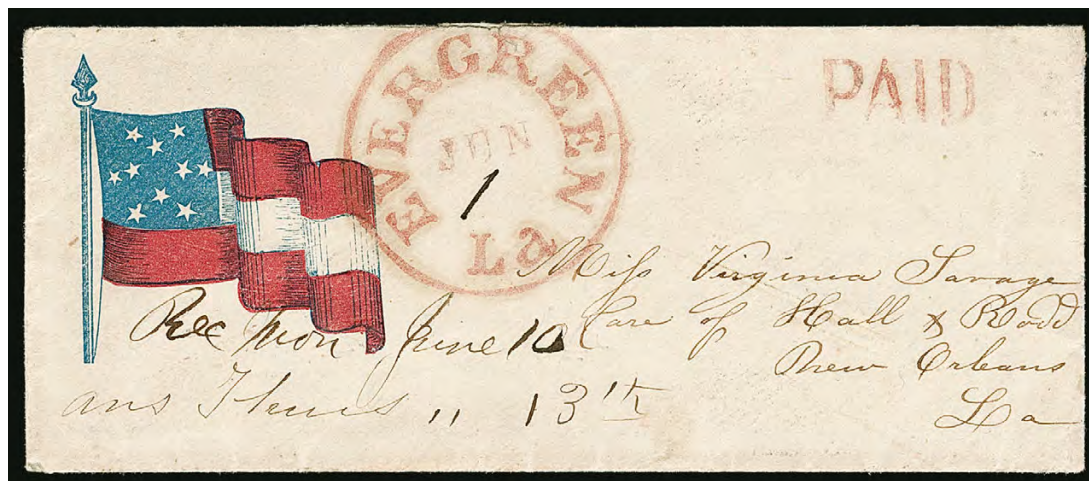 EVERGREEN
JUN
1
La
PAID
Miss Virginia Savage
Care of Hall & Rodd
New Orleans
La
Rec Mon June 10
ans Thurs " 13th